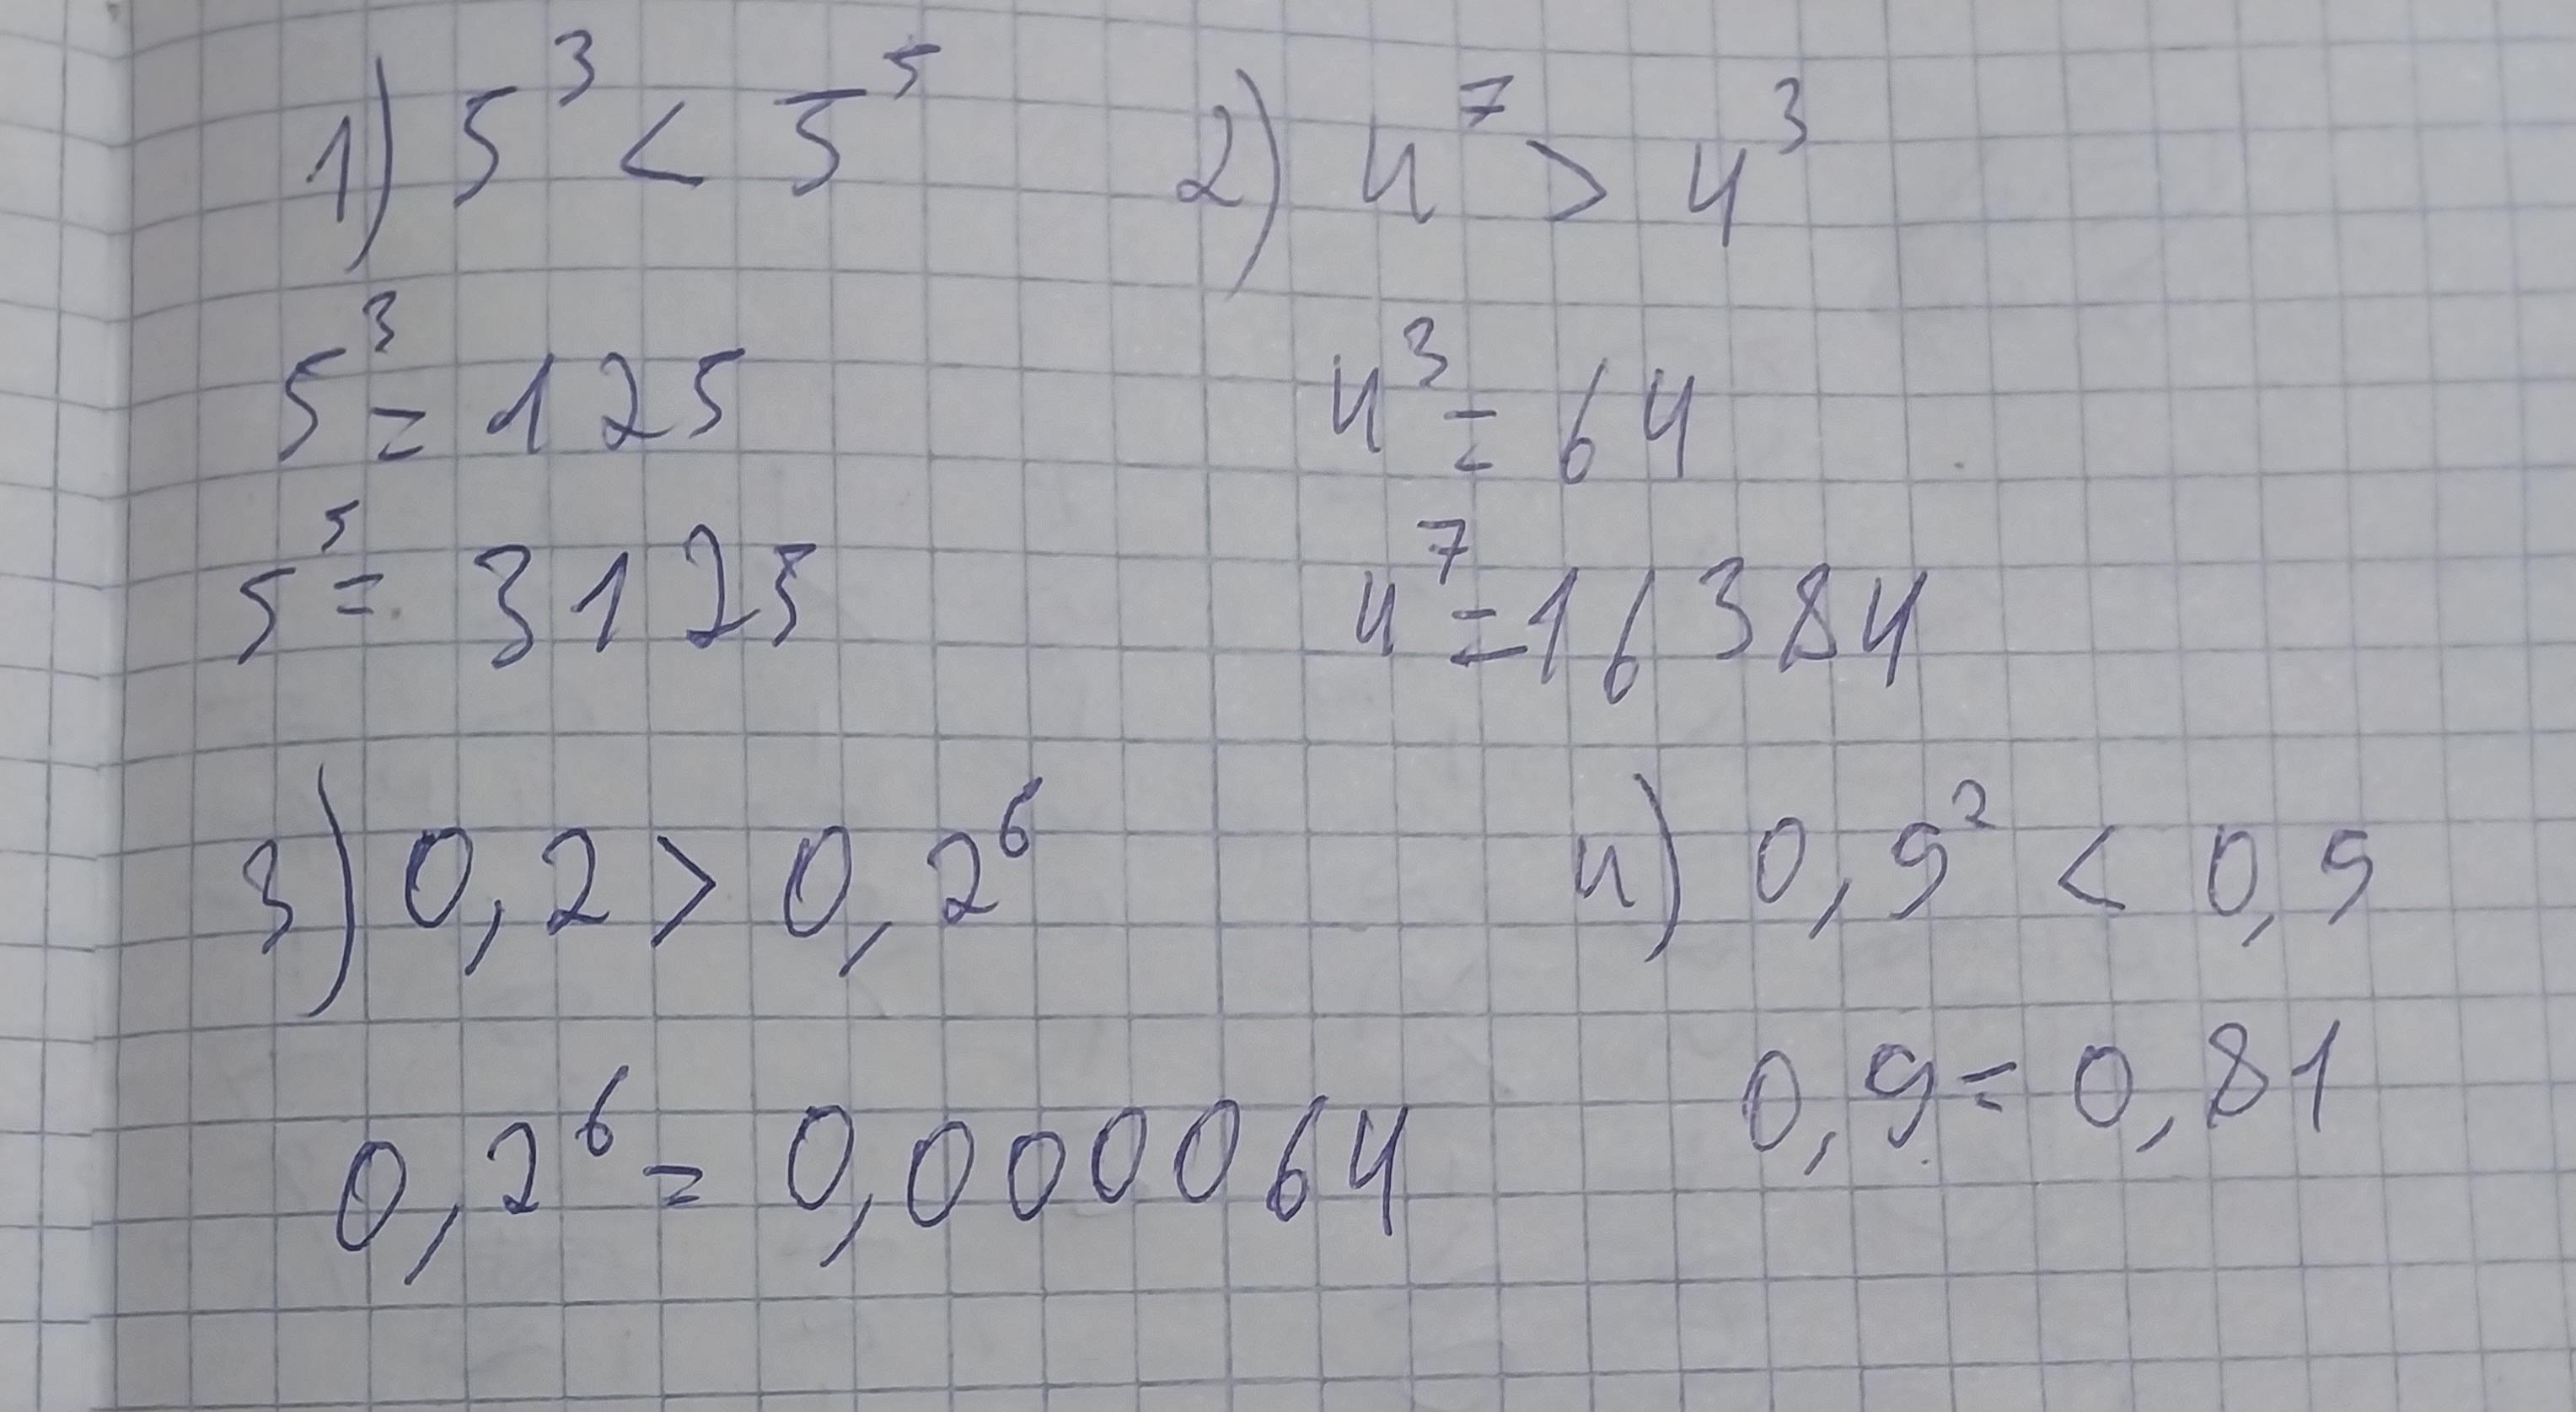 1) 5³ < 5⁵
2) 4⁷ > 4³
5³ = 125
4³ = 64
5⁵ = 3125
4⁷ = 16384
3) 0,2 > 0,2⁶
4) 0,9² < 0,9
0,2⁶ = 0,000064
0,9 = 0,81